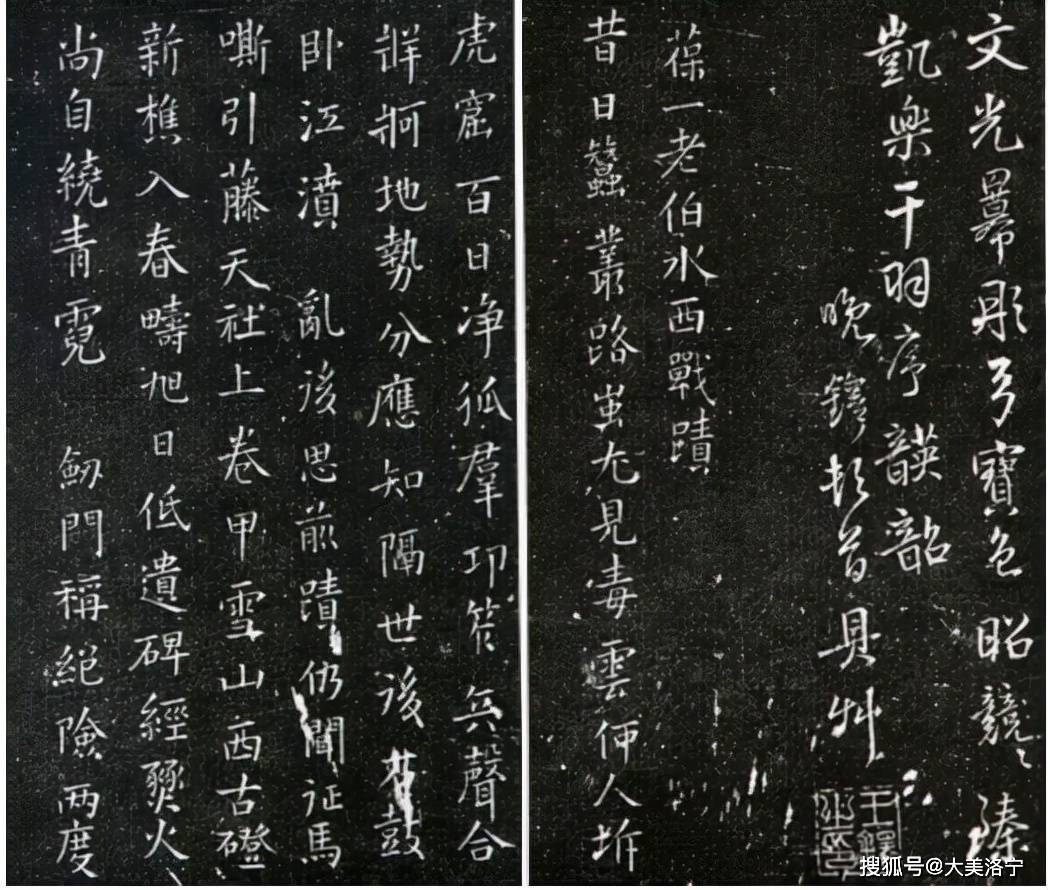 文光冪彤弓寶色昭競〻臻
凱樂干羽序韺韶
晚鐸頓首具艸
葆一老伯水西戰蹟
昔日蠶叢路蚩尤見毒雲人坼
虎窟百日净狐羣邛笮兵聲合
牂牁地勢分應知隔世後鼓
卧江濆 亂後思前蹟仍聞征馬
嘶引藤天社上卷甲雪山西古磴
新樵入春疇旭日低遺碑經燹火
尚自繞青霓 劒門稱絕險两度
搜狐号@大美洛宁